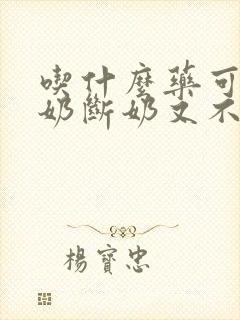 喫什麼藥可
奶斷奶又不
楊寶忠